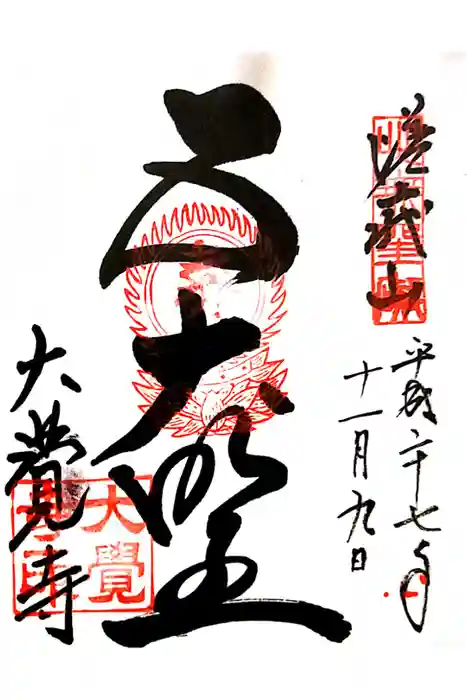 嵯峨山
平成二十七年
十一月九日
五大明王
大覺寺
大覺